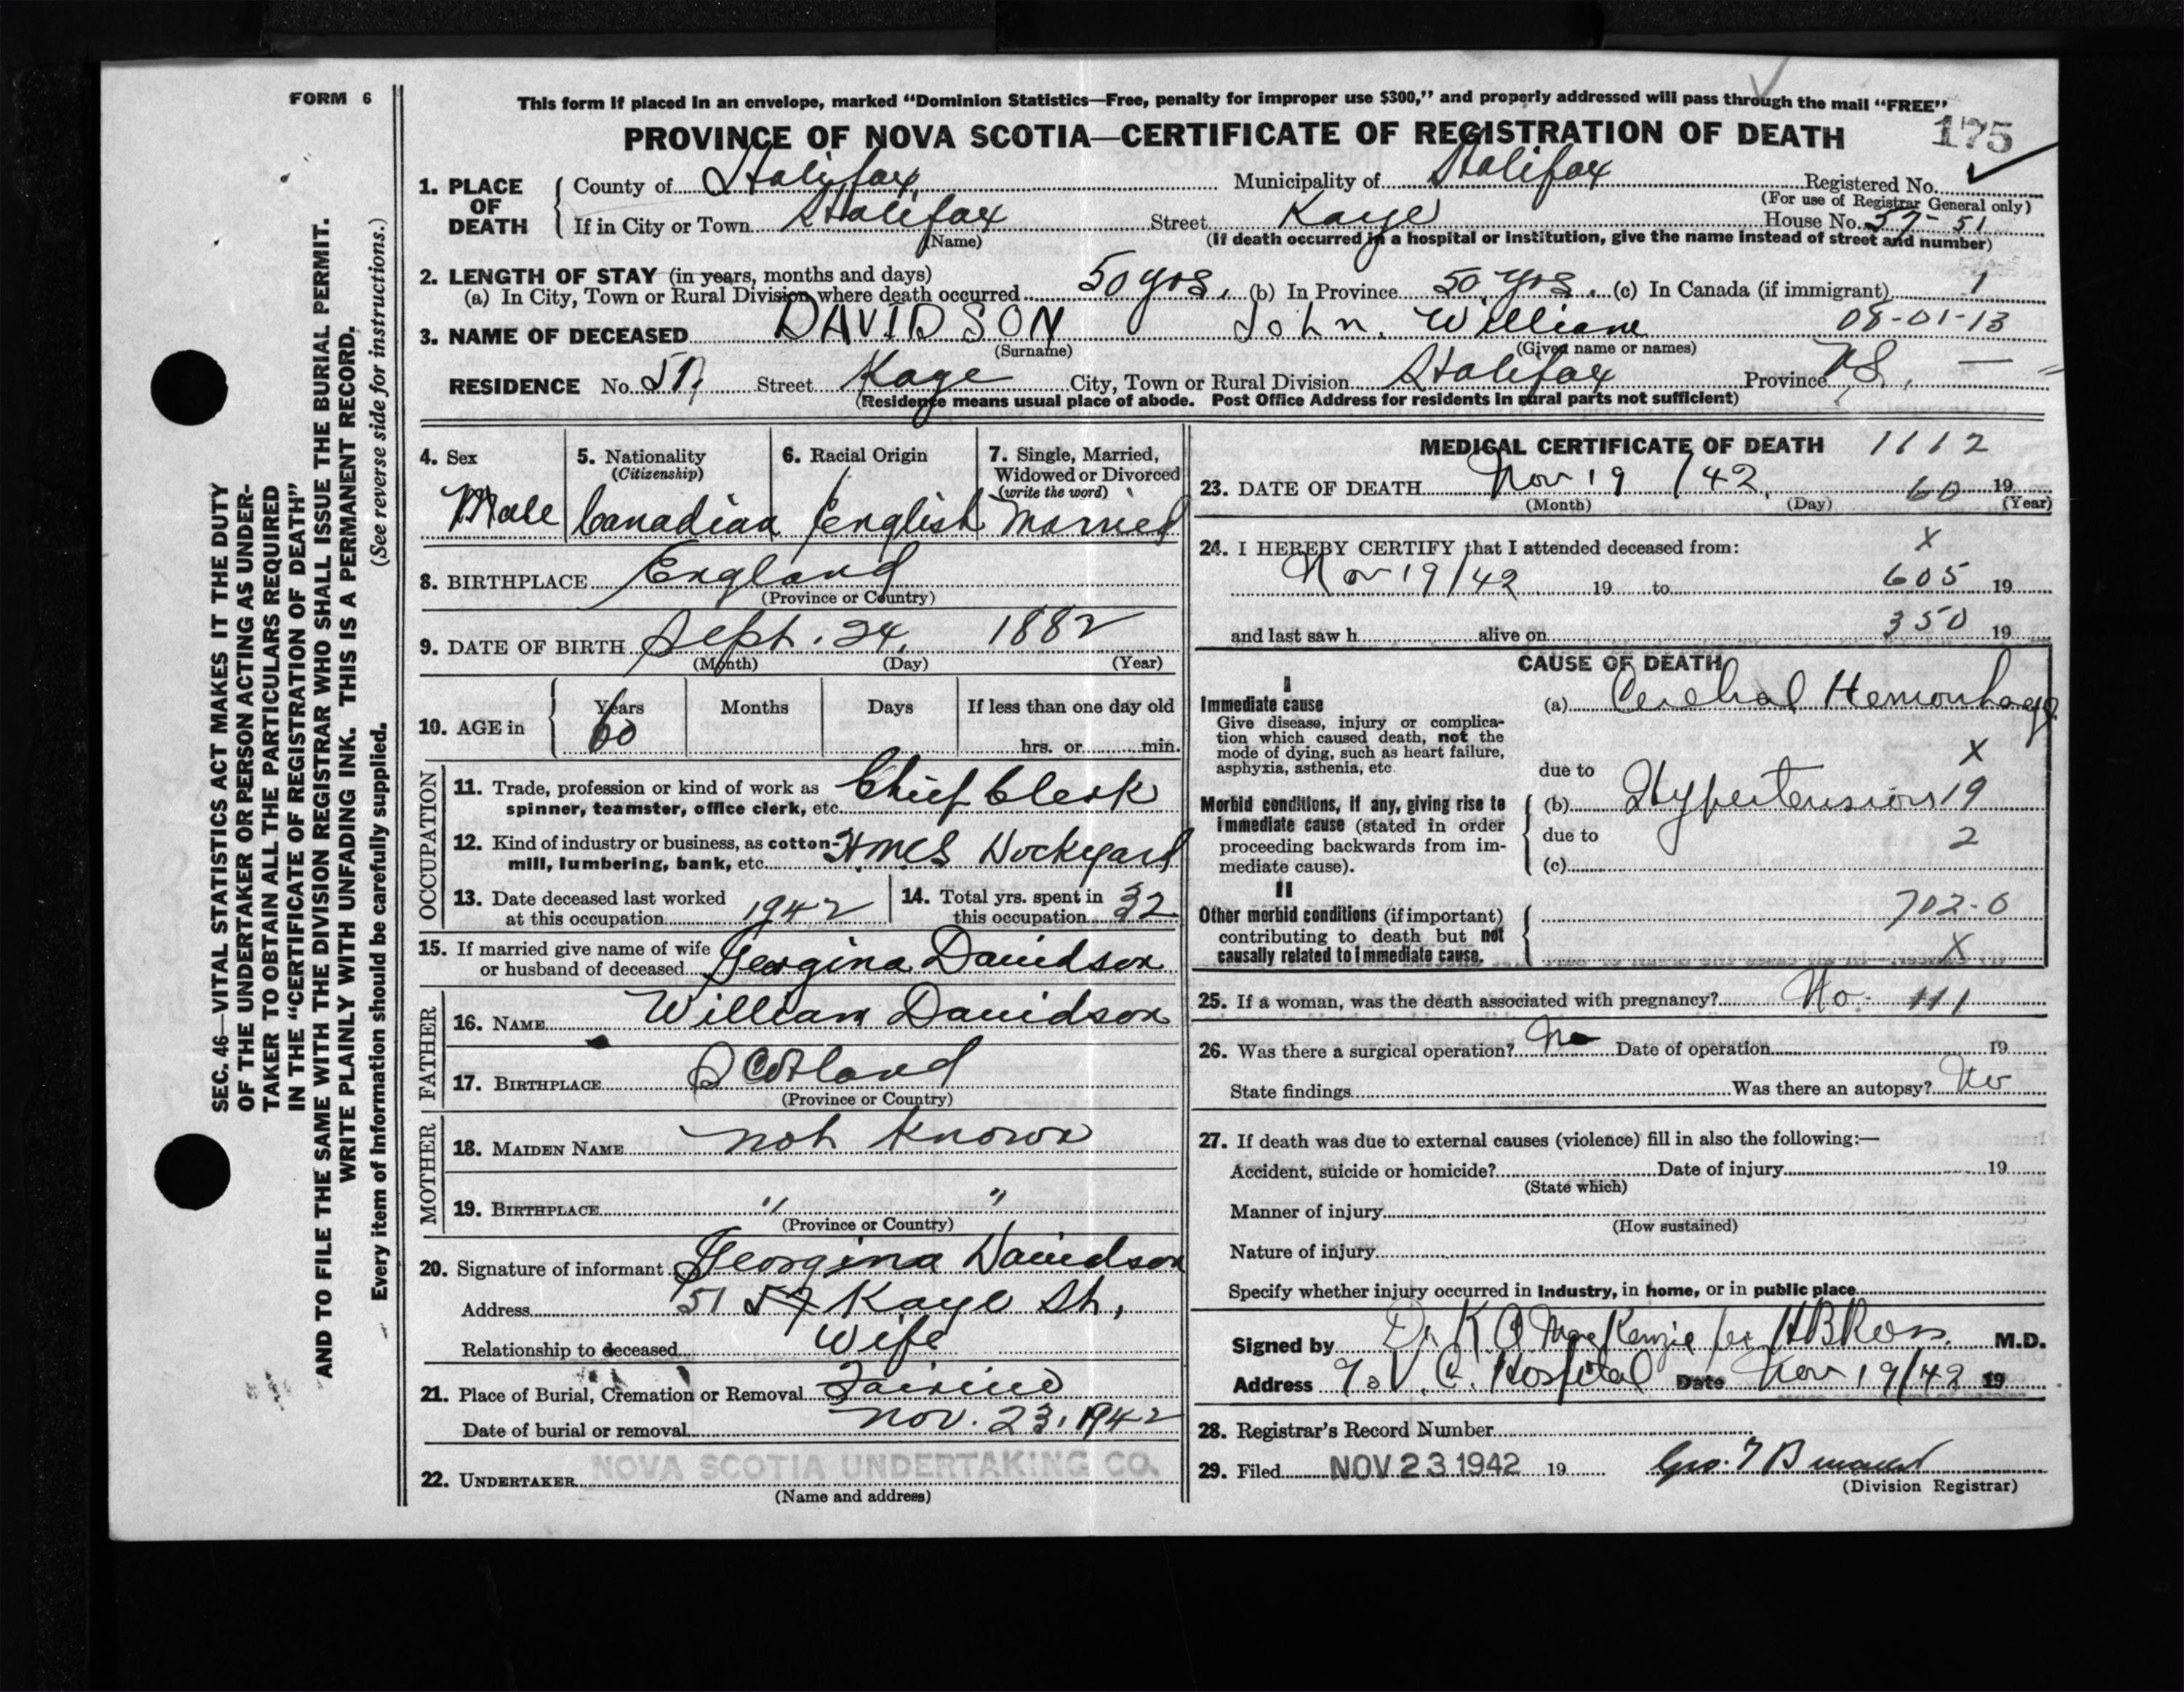 FORM 6
This form if placed in an envelope, marked “Dominion Statistics—Free, penalty for improper use $300,” and properly addressed will pass through the mail “FREE”
PROVINCE OF NOVA SCOTIA—CERTIFICATE OF REGISTRATION OF DEATH 175
1. PLACE OF DEATH County of Halifax Municipality of Halifax Registered No.
(For use of Registrar General only)
If in City or Town Halifax Street Kaye House No. 57-51
(Name) (If death occurred in a hospital or institution, give the name instead of street and number)
2. LENGTH OF STAY (in years, months and days)
(a) In City, Town or Rural Division where death occurred 50 yrs. (b) In Province 50 yrs. (c) In Canada (if immigrant) 1
3. NAME OF DECEASED DAVIDSON John William 08-01-13
(Surname) (Given name or names)
RESIDENCE No. 57 Street Kaye City, Town or Rural Division Halifax Province NS.
(Residence means usual place of abode. Post Office Address for residents in rural parts not sufficient)
4. Sex 5. Nationality (Citizenship) 6. Racial Origin 7. Single, Married, Widowed or Divorced (write the word)
Male Canadian English Married
8. BIRTHPLACE England
(Province or Country)
9. DATE OF BIRTH Sept. 24, 1882
(Month) (Day) (Year)
10. AGE in Years Months Days If less than one day old
60 hrs. or min.
OCCUPATION
11. Trade, profession or kind of work as Chief Clerk
spinner, teamster, office clerk, etc.
12. Kind of industry or business, as cotton- HMCS Dockyard
mill, lumbering, bank, etc.
13. Date deceased last worked at this occupation 1942 14. Total yrs. spent in this occupation 32
15. If married give name of wife or husband of deceased Georgina Davidson
FATHER
16. NAME William Davidson
17. BIRTHPLACE Scotland
(Province or Country)
MOTHER
18. MAIDEN NAME not known
19. BIRTHPLACE " "
(Province or Country)
20. Signature of informant Georgina Davidson
Address 51 57 Kaye St,
Relationship to deceased Wife
21. Place of Burial, Cremation or Removal
Date of burial or removal Nov. 23, 1942
22. UNDERTAKER NOVA SCOTIA UNDERTAKING CO.
(Name and address)
MEDICAL CERTIFICATE OF DEATH 1112
23. DATE OF DEATH Nov 19 / 42 60 19
(Month) (Day) (Year)
24. I HEREBY CERTIFY that I attended deceased from: X
Nov 19/42 19 to 605 19
and last saw h alive on 350 19
CAUSE OF DEATH
I
Immediate cause (a) Cerebral Hemorrhage
Give disease, injury or complica-
tion which caused death, not the
mode of dying, such as heart failure,
asphyxia, asthenia, etc.
X
due to
Morbid conditions, if any, giving rise to (b) Hypertension 19
immediate cause (stated in order due to 2
proceeding backwards from im-
mediate cause). (c)
II
Other morbid conditions (if important) 702-0
contributing to death but not
causally related to immediate cause. X
25. If a woman, was the death associated with pregnancy? No 111
26. Was there a surgical operation? No Date of operation 19
State findings Was there an autopsy? No
27. If death was due to external causes (violence) fill in also the following:—
Accident, suicide or homicide? Date of injury 19
(State which)
Manner of injury
(How sustained)
Nature of injury
Specify whether injury occurred in industry, in home, or in public place
Signed by Dr K A MacKenzie per HB Ross M.D.
Address Hospital Date Nov 19/42 19
28. Registrar's Record Number
29. Filed NOV 23 1942 19 Geo.
(Division Registrar)
SEC. 46—VITAL STATISTICS ACT MAKES IT THE DUTY
OF THE UNDERTAKER OR PERSON ACTING AS UNDER-
TAKER TO OBTAIN ALL THE PARTICULARS REQUIRED
IN THE “CERTIFICATE OF REGISTRATION OF DEATH”
AND TO FILE THE SAME WITH THE DIVISION REGISTRAR WHO SHALL ISSUE THE BURIAL PERMIT.
WRITE PLAINLY WITH UNFADING INK. THIS IS A PERMANENT RECORD.
Every item of information should be carefully supplied. (See reverse side for instructions.)